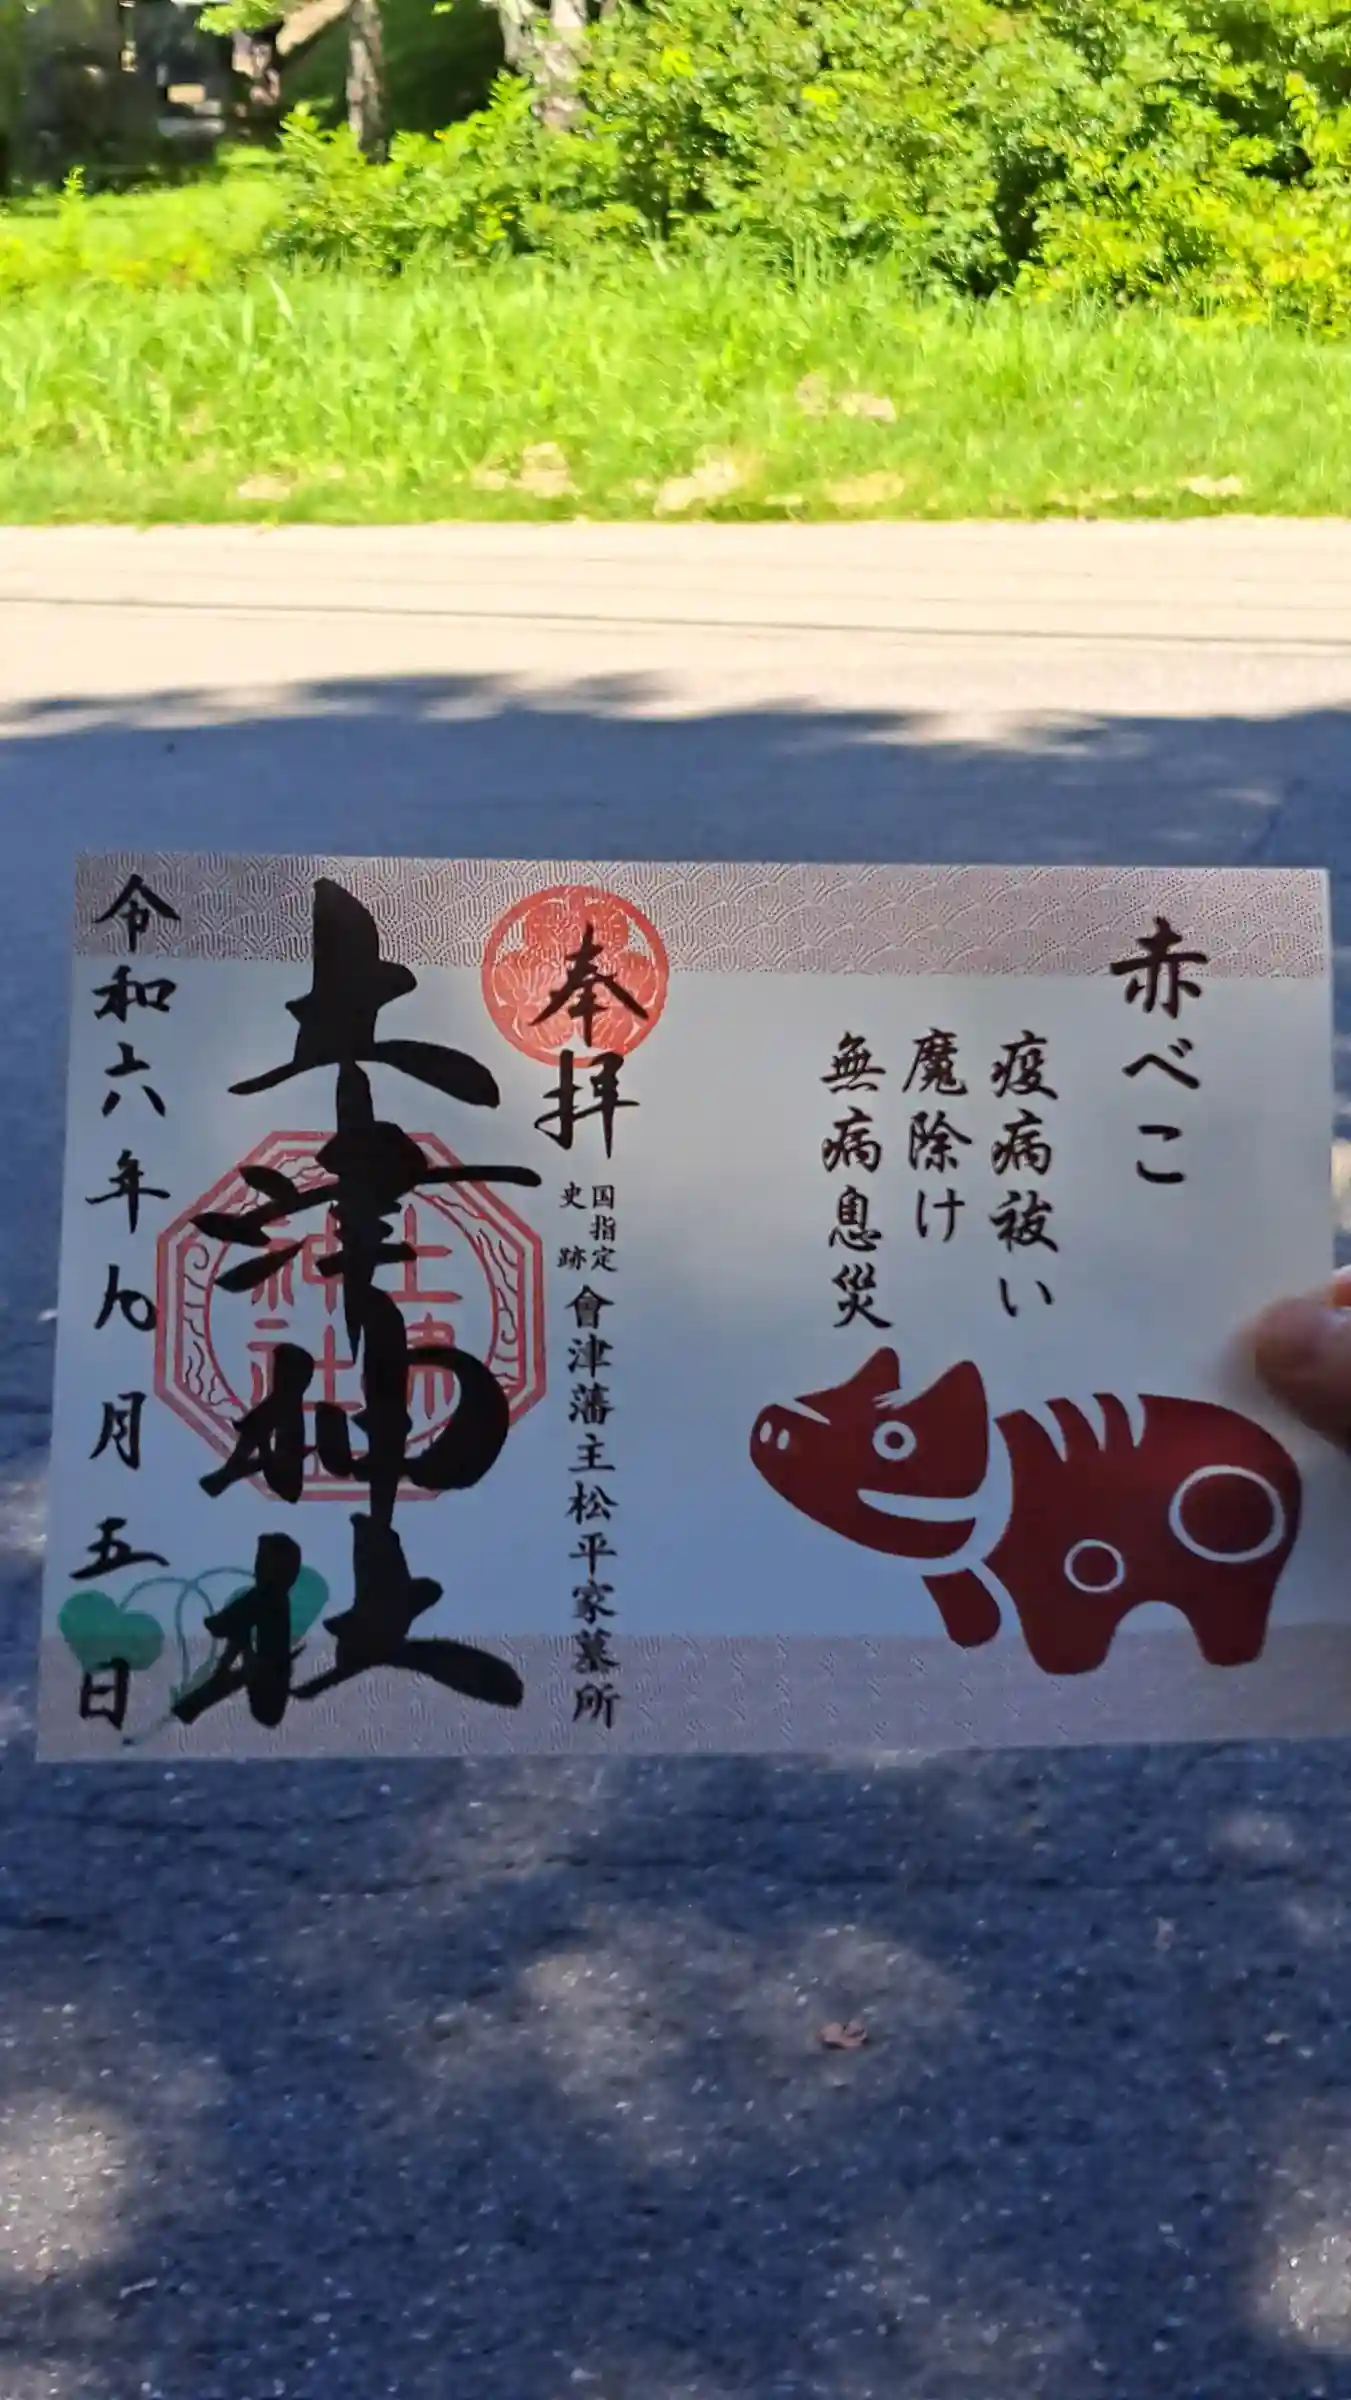 赤べこ
疫病祓い
魔除け
無病息災
奉拝
国指定
史跡
會津藩主松平家墓所
土津神社
土津
神社
令和六年九月五日